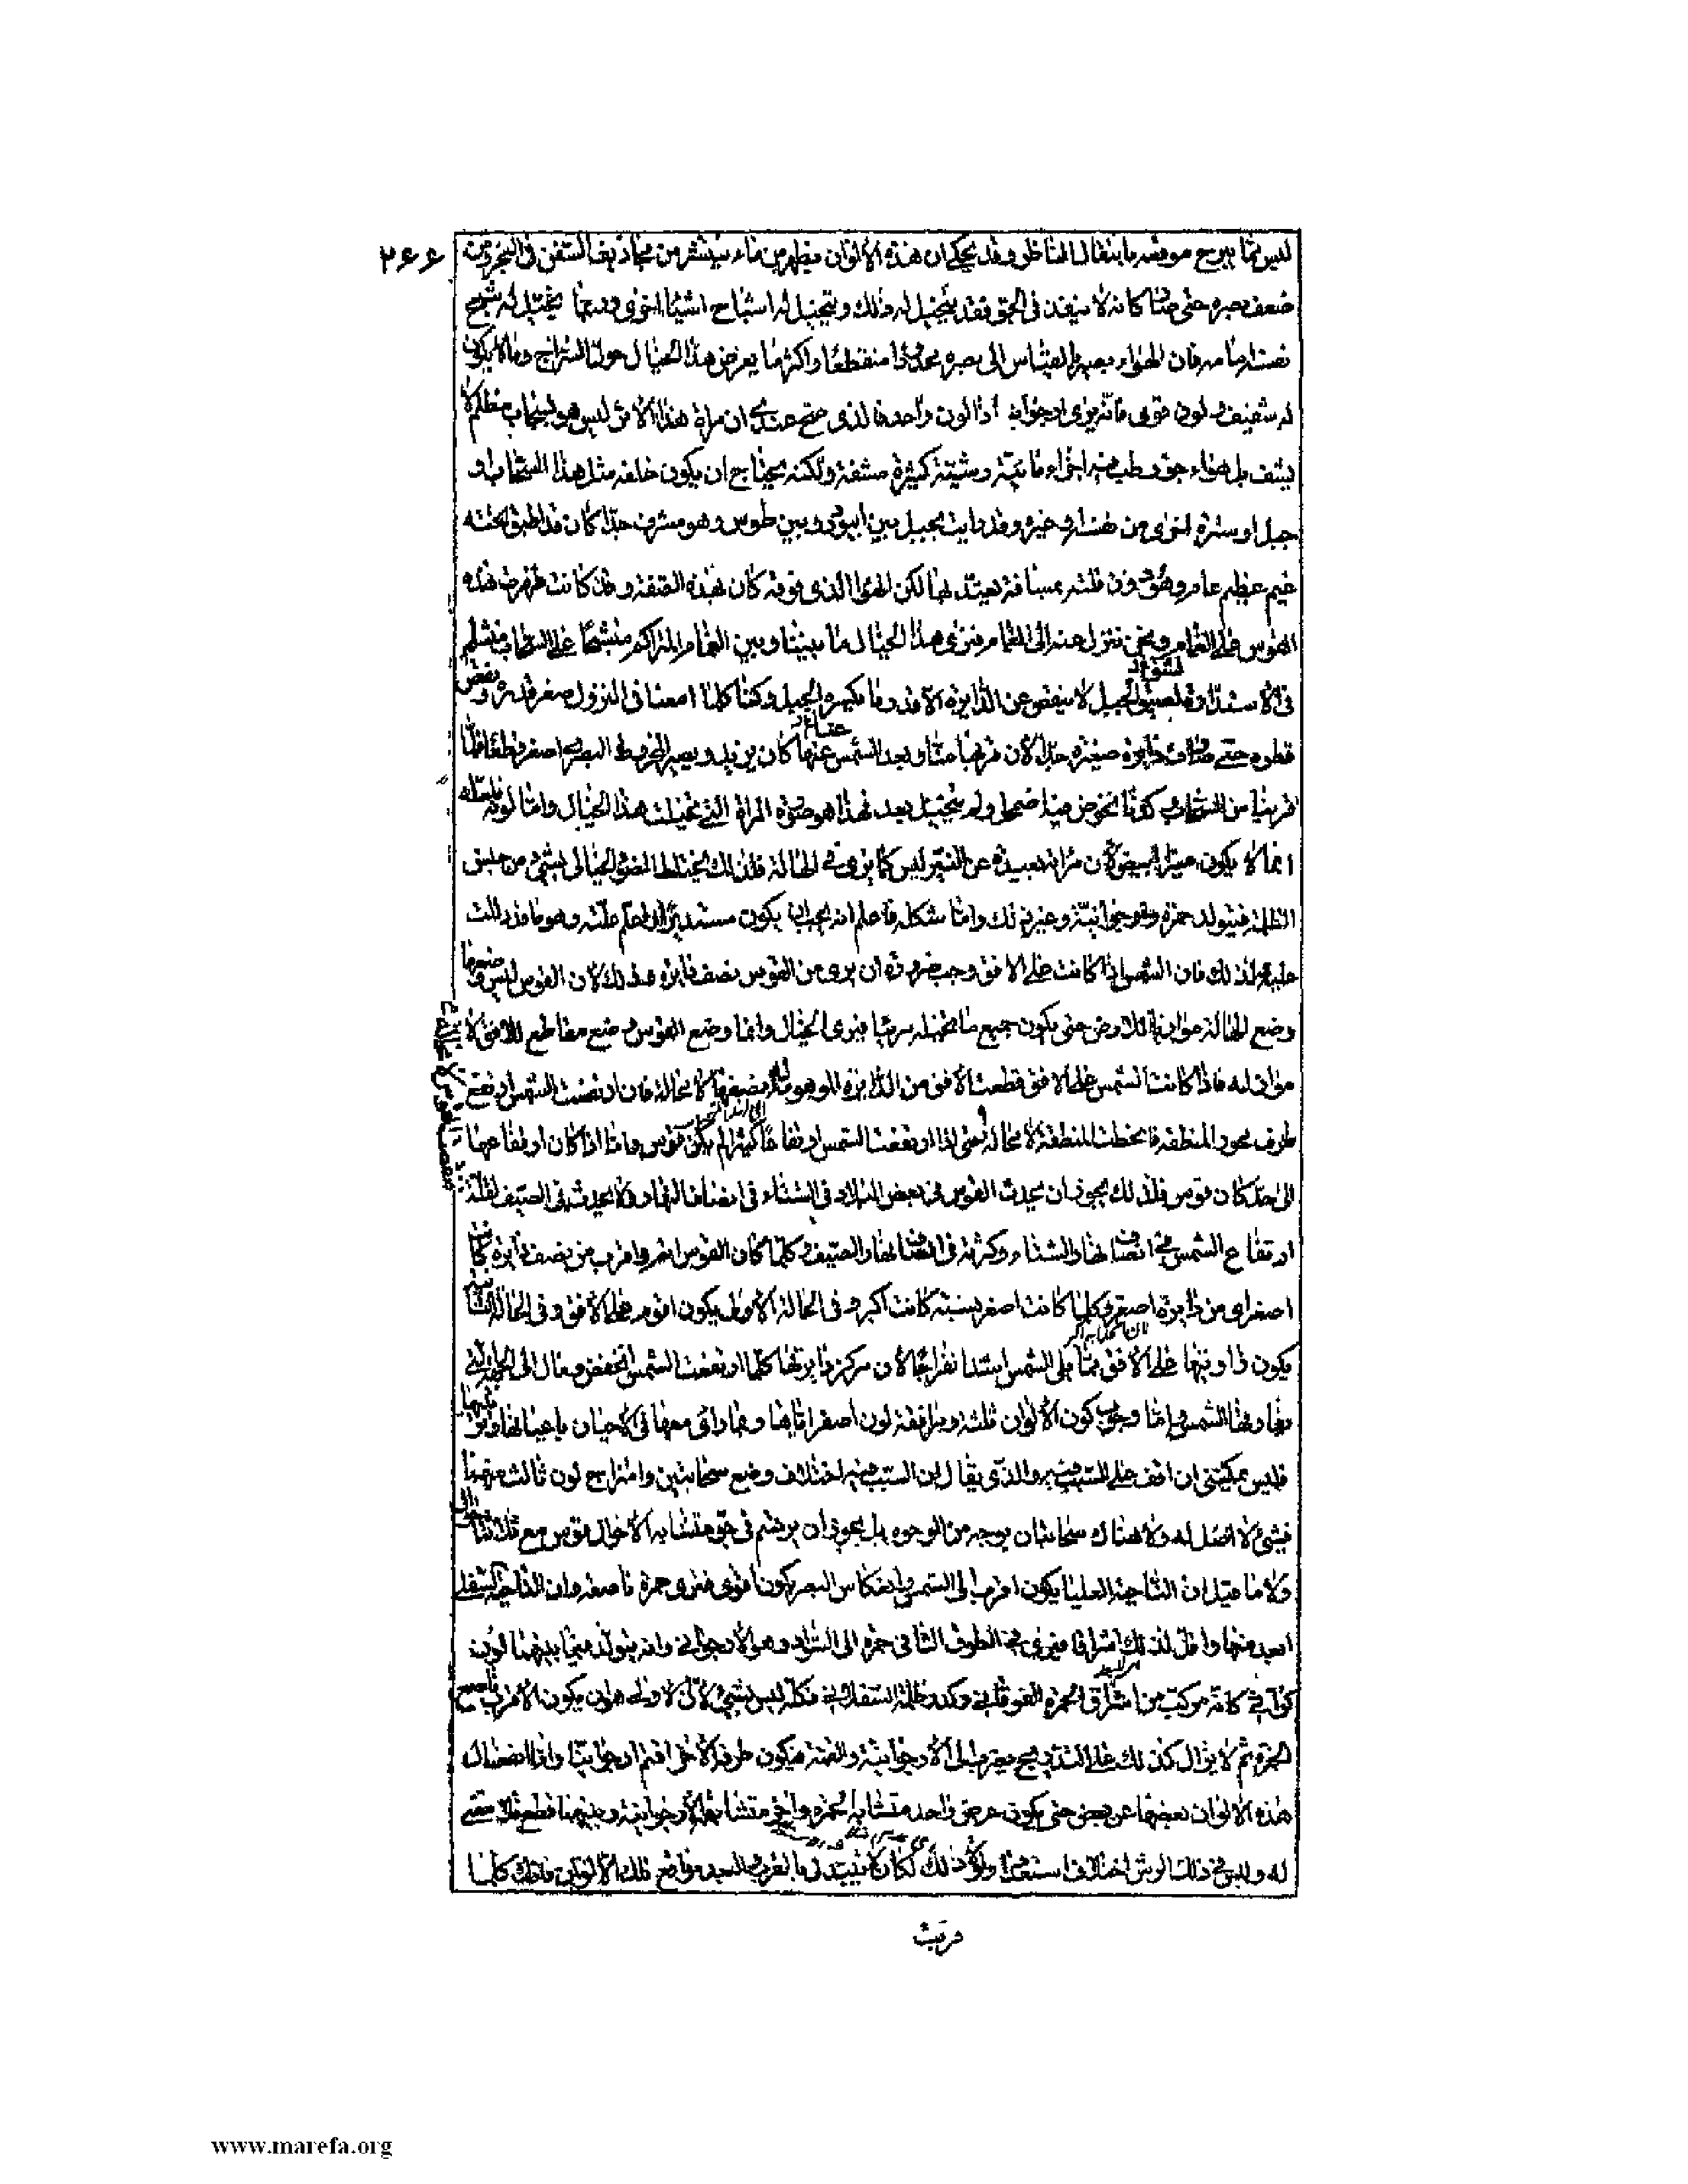 ٢٦٦
ليس مما يبرح موقعه بانتقال الناظر وقد يحكى ان هذه الألوان يظهر من ماء ينتشر من مجاذيف السفن فى البحر ومن
ضعف بصره حتى صار كانه لا ينفذ فى الجو فقد يتخيل له ذلك ويتخيل له اشباح اشياء اخرى وربما يخيل له شبح
نفسه امامه فان الهواء يصير بالقياس الى بصره واكثر ما يعرض هذا الخيال حول السراج وما لا يكون
له شفيف ولون قوى فانه يرى ارجوانيا ذا لون واحد فالذى صح عندى ان مرآة هذا الاثر ليس هو بسحاب مظلم لا
يشف بل هواء جو رطب فيه اجزاء مائية رشية كثيرة مشفة ولكنه يحتاج ان يكون خلفه مثل هذا السحاب او
جبل او سترة اخرى من وغيره وقد رايت بجبل بين ابيورد وبين طوس وهو مشرف جدا كان قد اطبق تحته
غيم عظيم عام وهو دون قلته بمسافة يعتد بها لكن الهواء الذى فوقه كان بهذه الصفة وقد كانت ظهرت هذه
القوس على الغمام ونحن ننزل عنه الى الغمام فنرى هذا الخيال ما بيننا وبين الغمام المتراكم منشبحا على السحاب
لا ينقص عن الدائرة الا قدر ما يكسره الجبل وكنا كلما امعنا فى النزول صغر قدره ونقص
قطره حتى صارت دائرة صغيرة جدا لأن قربنا منها وبعد الشمس عنها كان يزيد ويصير المخروط البصرى اصغر قطعا فلما
قربنا من السحاب وكدنا نخوض فيه اضمحل ولم يتخيل بعد فهذا هو صورة المرآة التى تخيلت هذا الخيال واما لونه فلعله
انما لا يكون منيرا ابيض لأن مرآته بعيدة عن النير ليس كما يرى فى الهالة فلذلك يختلط الضوء الخيالى بشىء من جنس
الظلمة فيتولد حمرة وارجوانية وغير ذلك واما شكله فاعلم انه يجب ان يكون مستديرا علته وهو ما قد دللت
عليه ولذلك فان الشمس اذا كانت على الافق وجب ضرورة ان يرى من القوس نصف دائرة وذلك لأن القوس ليس وضعها
وضع الهالة موازيا للارض حتى يكون جميع ما يتخيله مرئيا فيرى الخيال وانما وضع القوس وضع مقاطع للأفق لا
مواز له فاذا كانت الشمس على الافق قطعت الأفق من الدائرة نصفها لا محالة فان ارتفعت الشمس ارتفع
طرف محور المنطقة فانحطت المنطقة لا محالة حتى اذا ارتفعت الشمس ارتفاعا كثيرا لم يكن قوس واما اذا كان ارتفاعها
الى حد كان قوس فلذلك يجوز ان يحدث القوس فى بعض البلاد فى الشتاء فى انصاف النهار ولا يحدث فى الصيف لقلة
ارتفاع الشمس فى انصاف نهار الشتاء وكثرته فى انصاف نهار الصيف وكلما كان القوس اتم واقرب من نصف دائرة كانت
اصغر اى من دائرة اصغر وكلما كانت اصغر نسبة كانت اكبر وفى الحالة الأولى يكون اقوم على الأفق وفى الحالة الثانية
يكون زاويتها على الأفق مما يلى الشمس اشد انفراجا لأن مركز دائرتها كلما ارتفعت الشمس انخفض ومال الى الجهة التى
الشمس واما وجوب كون الألوان ثلثة ومرافقة لون اصفر اياها دائما معها فى الأحيان باعيانها
فليس يمكننى ان اقف على السبب فيه والذى يقال ان السبب فيه اختلاف وضع سحابتين وامتزاج لون ثالث منهما
فشىء لا اصل له ولا هناك سحابتان بوجه من الوجوه بل يجوز ان يرتسم فى جو متشابه الأحوال قوس مع تلك الألوان
ولا ما قيل ان الناحية العليا يكون اقرب الى الشمس وانعكاس البصر يكون اقوى فترى حمرة ناصعة وان الناحية السفلى
ابعد منها واقل لذلك اشراقا فيرى فى الطرف الثانى حمرة الى السواد وهو الارجوانى وانه يتولد فيما بينهما لون
كراثى كانه مركب من اشراق الحمرة الفوقانى وكدر ظلمة السفلانى فكله ليس بشىء لأن الاولى هو ان يكون الأقرب ناصع
الحمرة ثم لا يزال كذلك على التدريج يضرب الى الأرجوانية والقتمة فيكون طرفه الآخر اقتم ارجوانيا واما انفصال
هذه الألوان بعضها عن بعض حتى يكون عرض واحد متشابه الحمرة وآخر متشابه الأرجوانية وبينهما قطع فلا معنى
له وليس فى ذلك الوشى اختلاف استعداد ولو كان ذلك لكان يتبدل بالقرب والبعد مواضع تلك الألوان فانك كلما
قربت
www.marefa.org